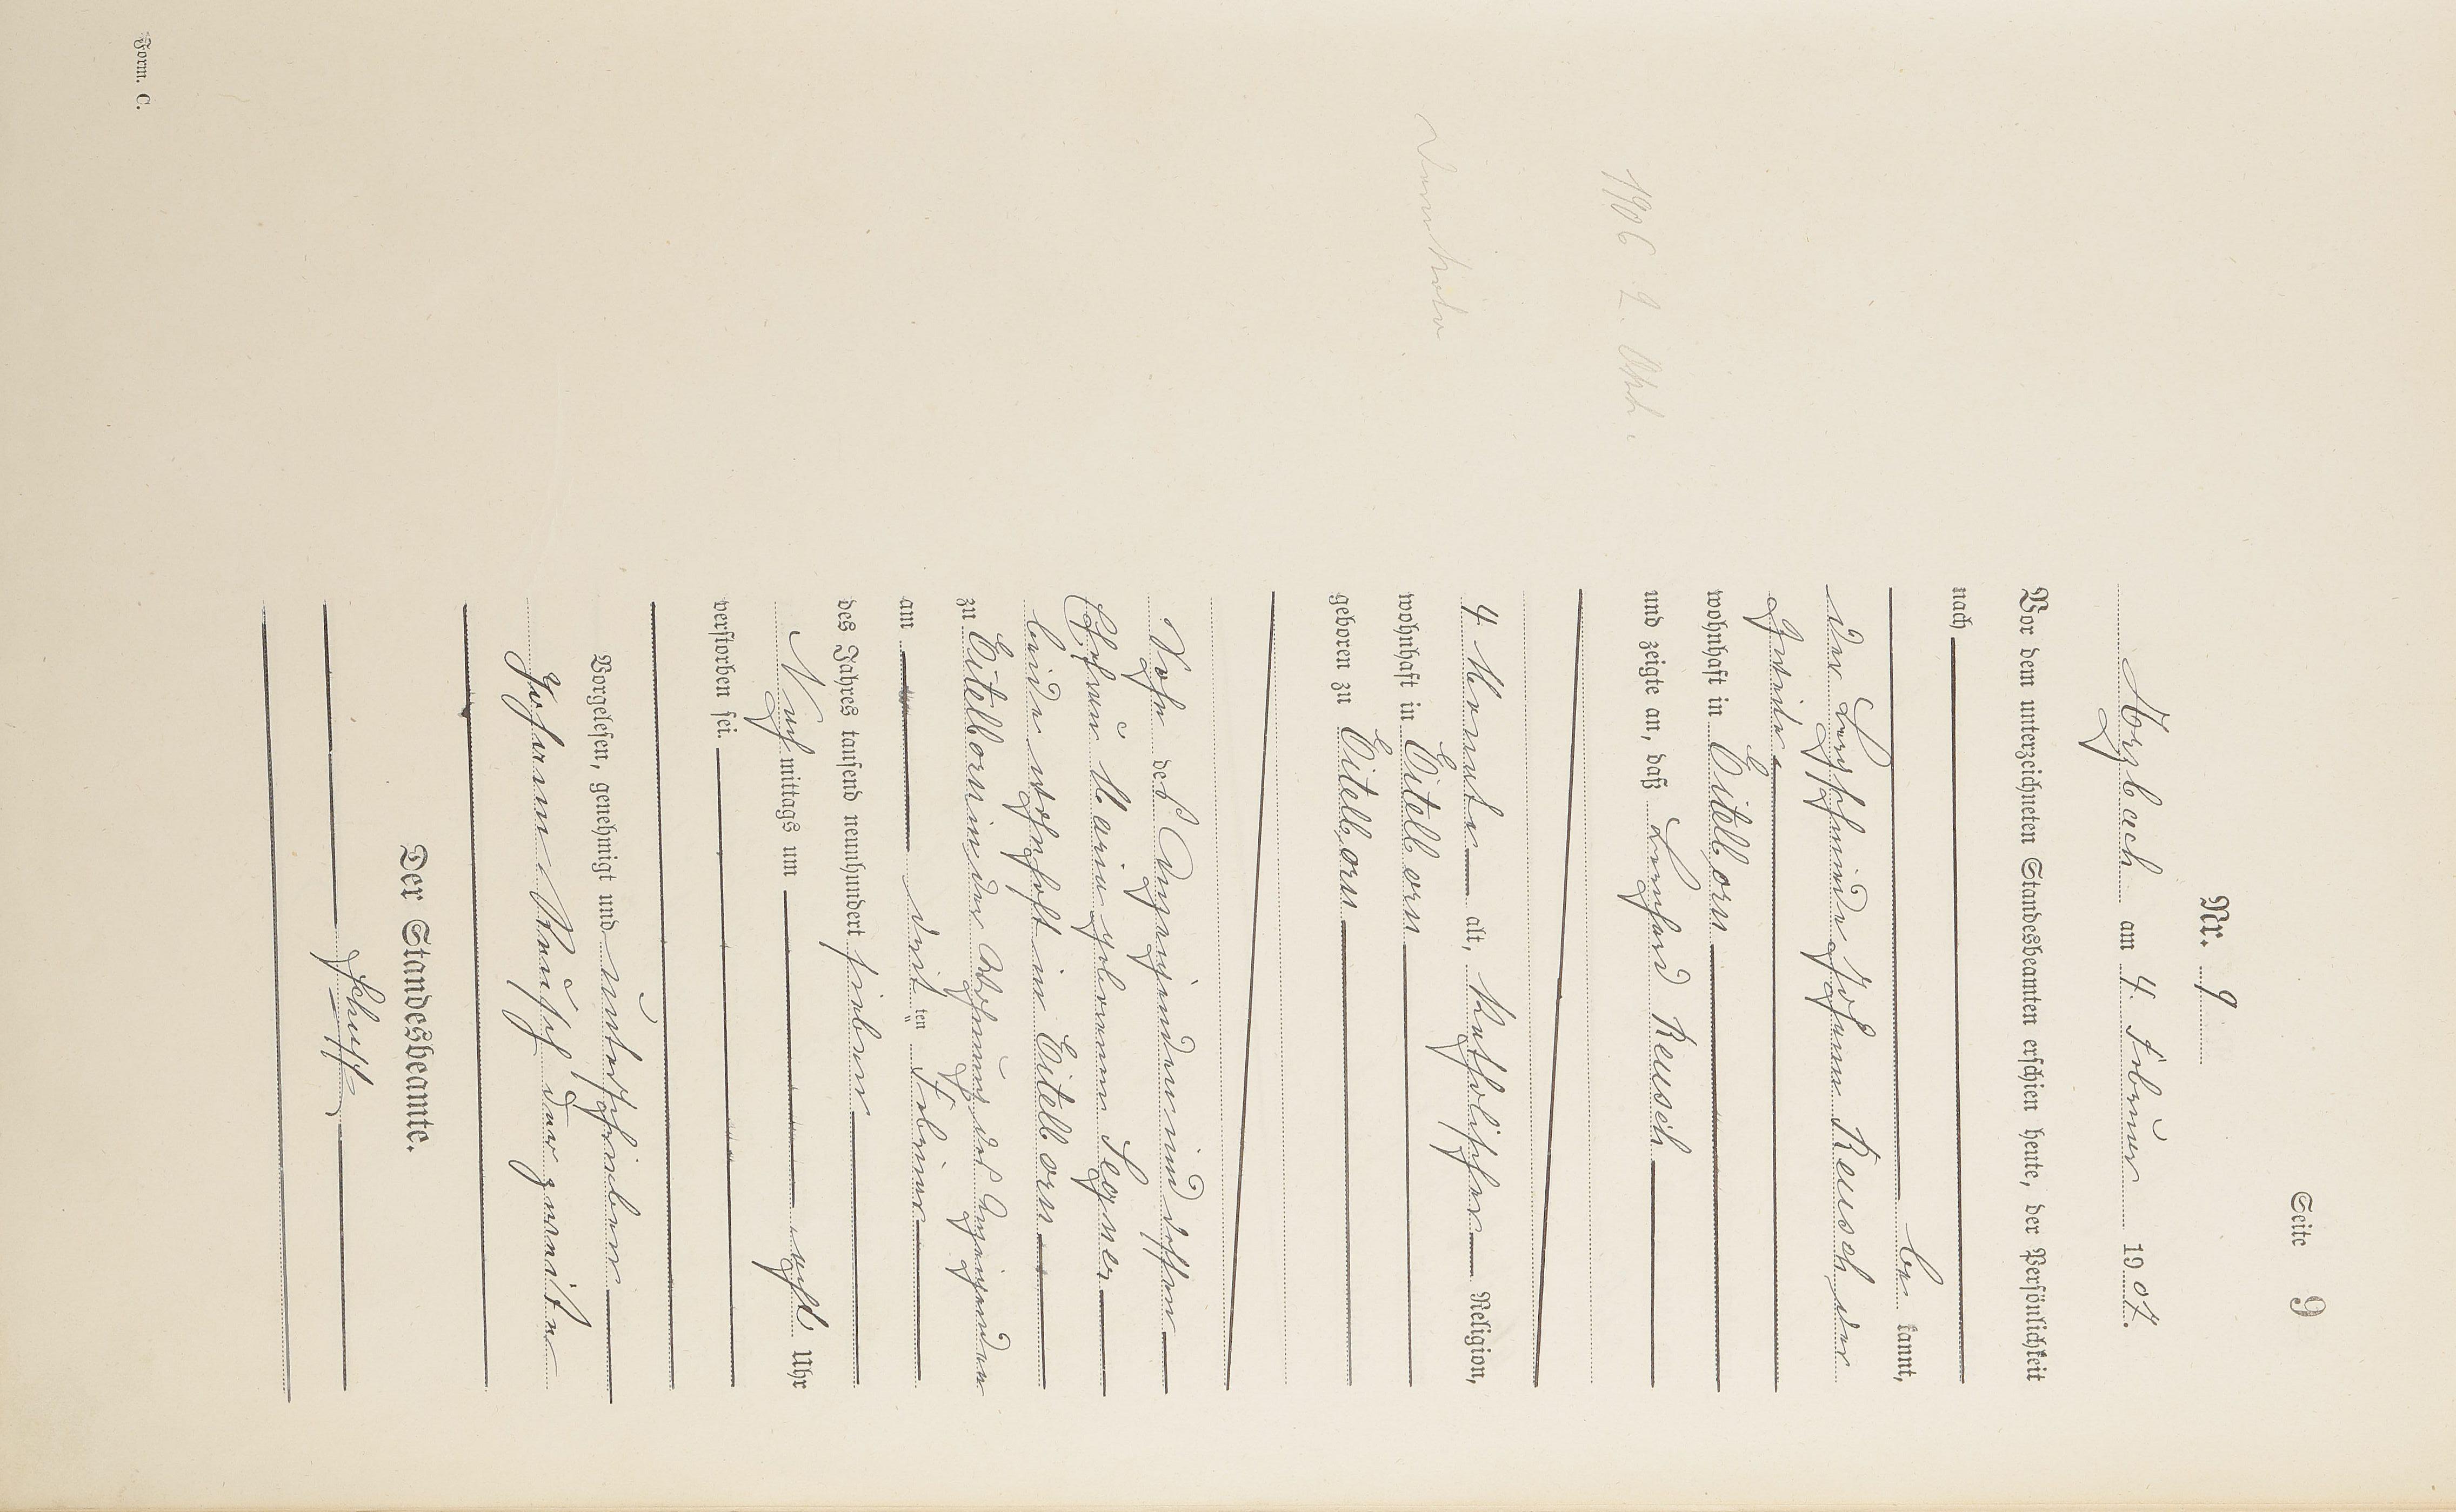 Seite 9
Nr. 9
Arzbach am 4. Februar 1907.
Vor dem unterzeichneten Standesbeamten erschien heute, der Persönlichkeit
nach
be kannt,
der Bergschmied Johann Reusch der
Zweite,
wohnhaft in Eitelborn
und zeigte an, daß Leonhard Reusch
4 Monate alt, katholischer Religion,
wohnhaft in Eitelborn
geboren zu Eitelborn
Sohn des Anzeigenden und dessen
Ehefrau Maria geborenen Legner
beide wohnhaft in Eitelborn
zu Eitelborn in der Wohnung des Anzeigenden
am drit ten Februar
des Jahres tausend neunhundert sieben
Nach mittags um acht Uhr
verstorben sei.
Vorgelesen, genehmigt und unterschrieben
Johann Reusch der zweite
Der Standesbeamte.
1906 2. Okt.
Form. C.